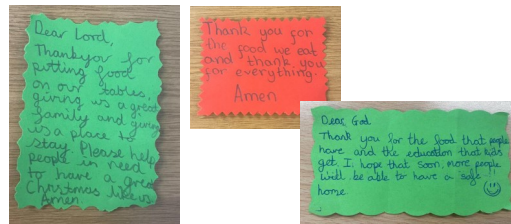 Dear Lord,
Thankyou for
putting food
on our tables,
giving us a great
family and giving
us a place to
stay. Please help
people in need
to have a great
Christmas like us
Amen
Thank you for
the food we eat
and thank you
for everything.
Amen
Dear God
Thank you for the food that people
have and the education that kids
get. I hope that soon, more people
will be able to have a safe
home.